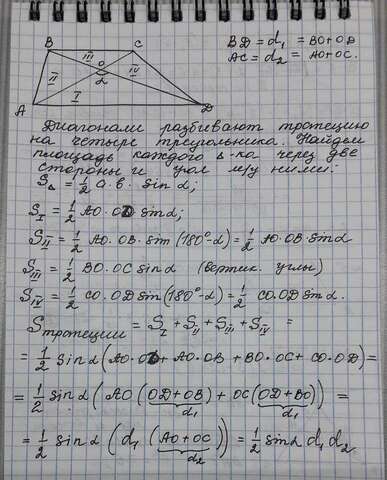 B C III O II IV α I A D
BD = d₁ = BO+OD
AC = d₂ = AO+OC.
Диагонали разбивают трапецию
на четыре треугольника. Найдем
площадь каждого Δ-ка через две
стороны и угол м/у ними.
S_Δ = 1/2 a·b· sin α;
S_I = 1/2 AO·OD sin α;
S_II = 1/2 AO·OB·sin(180°-α) = 1/2 AO·OB sin α
S_III = 1/2 BO·OC sin α (вертик. углы)
S_IV = 1/2 CO·OD sin(180°-α) = 1/2 CO·OD sin α.
S трапеции = S_I + S_II + S_III + S_IV =
= 1/2 sin α (AO·OD + AO·OB + BO·OC + CO·OD) =
= 1/2 sin α (AO (OD+OB) + OC (OD+BO)) =
d₁ d₁
= 1/2 sin α (d₁ (AO+OC)) = 1/2 sin α d₁ d₂
d₂